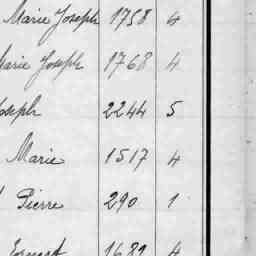 Marie Joseph 1758 4
Marie Joseph 1768 4
Joseph 2244 5
Marie 1517 4
Pierre 290 1
Ernest 1682 4